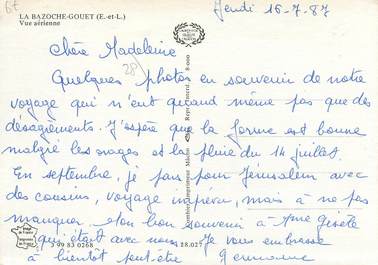 6t
LA BAZOCHE-GOUET (E.-et-L.)
Vue aérienne
Jeudi 16-7-87
Chère Madeleine
28)
Quelques photos en souvenir de notre
voyage qui n'eut quand même pas que des
désagréments. J'espère que la forme est bonne
malgré les orages et la pluie du 14 juillet.
En septembre, je pars pour Jérusalem avec
des cousins, voyage imprévu, mais à ne pas
manquer. Mon bon souvenir à Mme Gisèle
qui était avec nous. Je vous embrasse
à bientôt peut-être Germaine
3 99 83 0268
28.027